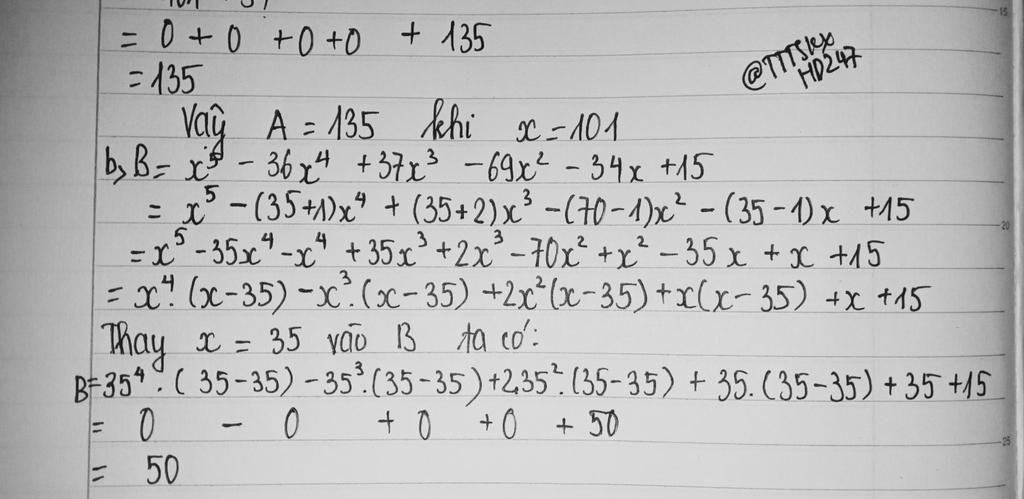 = 0 + 0 + 0 + 0 + 135
= 135
@TTTSkx
HD247
Vậy A = 135 khi x = 101
b, B = x⁵ - 36x⁴ + 37x³ - 69x² - 34x + 15
= x⁵ - (35+1)x⁴ + (35+2)x³ - (70-1)x² - (35-1)x + 15
= x⁵ - 35x⁴ - x⁴ + 35x³ + 2x³ - 70x² + x² - 35x + x + 15
= x⁴.(x-35) - x³.(x-35) + 2x²(x-35) + x(x-35) + x + 15
Thay x = 35 vào B ta có:
B = 35⁴.(35-35) - 35³.(35-35) + 2.35².(35-35) + 35.(35-35) + 35 + 15
= 0 - 0 + 0 + 0 + 50
= 50